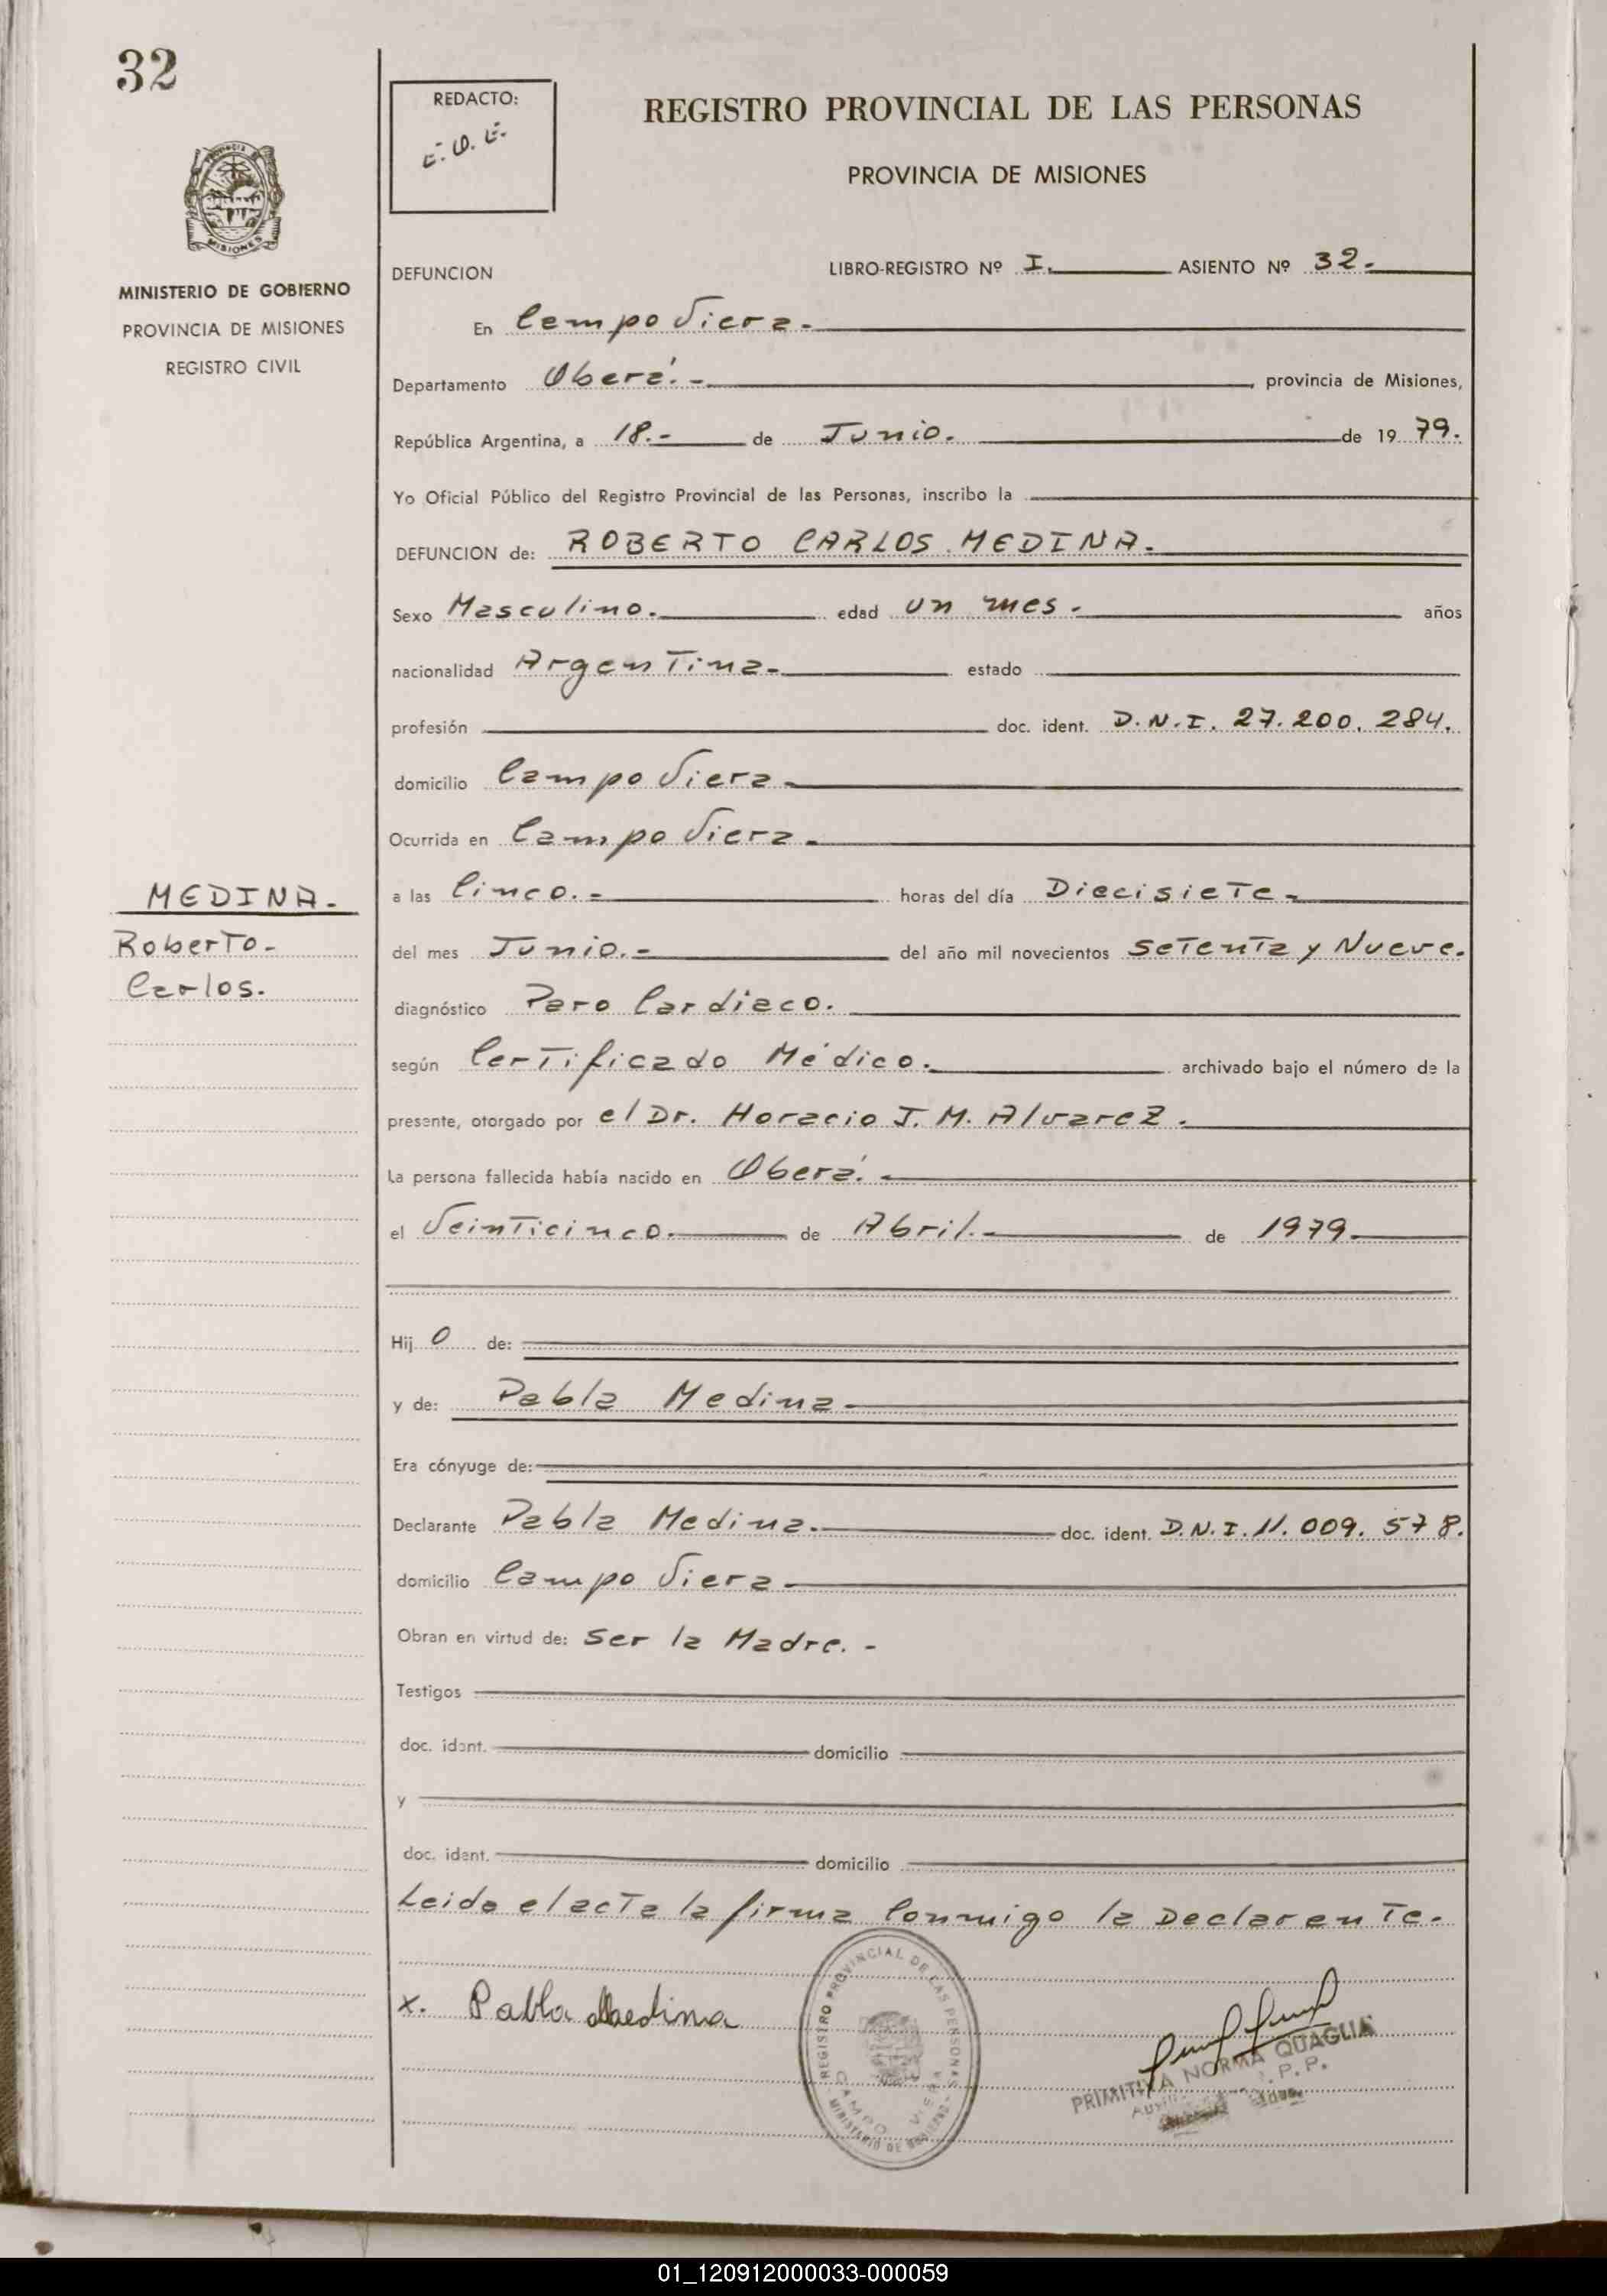 32
REDACTO:
REGISTRO PROVINCIAL DE LAS PERSONAS
PROVINCIA DE MISIONES
PROVINCIA DE
MISIONES
MINISTERIO DE GOBIERNO
PROVINCIA DE MISIONES
REGISTRO CIVIL
DEFUNCION LIBRO-REGISTRO Nº I. ASIENTO Nº 32.
En Campo Viera.
Departamento Oberá.- , provincia de Misiones,
República Argentina, a 18.- de Junio. de 1979.
Yo Oficial Público del Registro Provincial de las Personas, inscribo la
DEFUNCION de: ROBERTO CARLOS MEDINA.
Sexo Masculino. edad un mes. años
nacionalidad Argentina- estado
profesión doc. ident. D.N.I. 27.200.284.
domicilio Campo Viera
Ocurrida en Campo Viera.
a las Cinco.- horas del día Diecisiete-
del mes Junio.- del año mil novecientos Setenta y Nueve.
diagnóstico Paro Cardiaco.
según Certificado Médico. archivado bajo el número de la
presente, otorgado por el Dr. Horacio J. M. Alvarez.
La persona fallecida había nacido en Oberá.
el Veinticinco. de Abril.- de 1979.
Hijo de:
y de: Pabla Medina
Era cónyuge de:
Declarante Pabla Medina. doc. ident. D.N.I. 11.009.578.
domicilio Campo Viera
Obran en virtud de: Ser la Madre.-
Testigos
doc. ident. domicilio
y
doc. ident. domicilio
Leida el acta la firma Conmigo la Declarante.
x. Pabla Medina
MEDINA.
Roberto-
Carlos.
REGISTRO PROVINCIAL DE LAS PERSONAS
CAMPO VIERA
MINISTERIO DE GOBIERNO
PRIMITIVA NORMA QUAGLIA
01_120912000033-000059